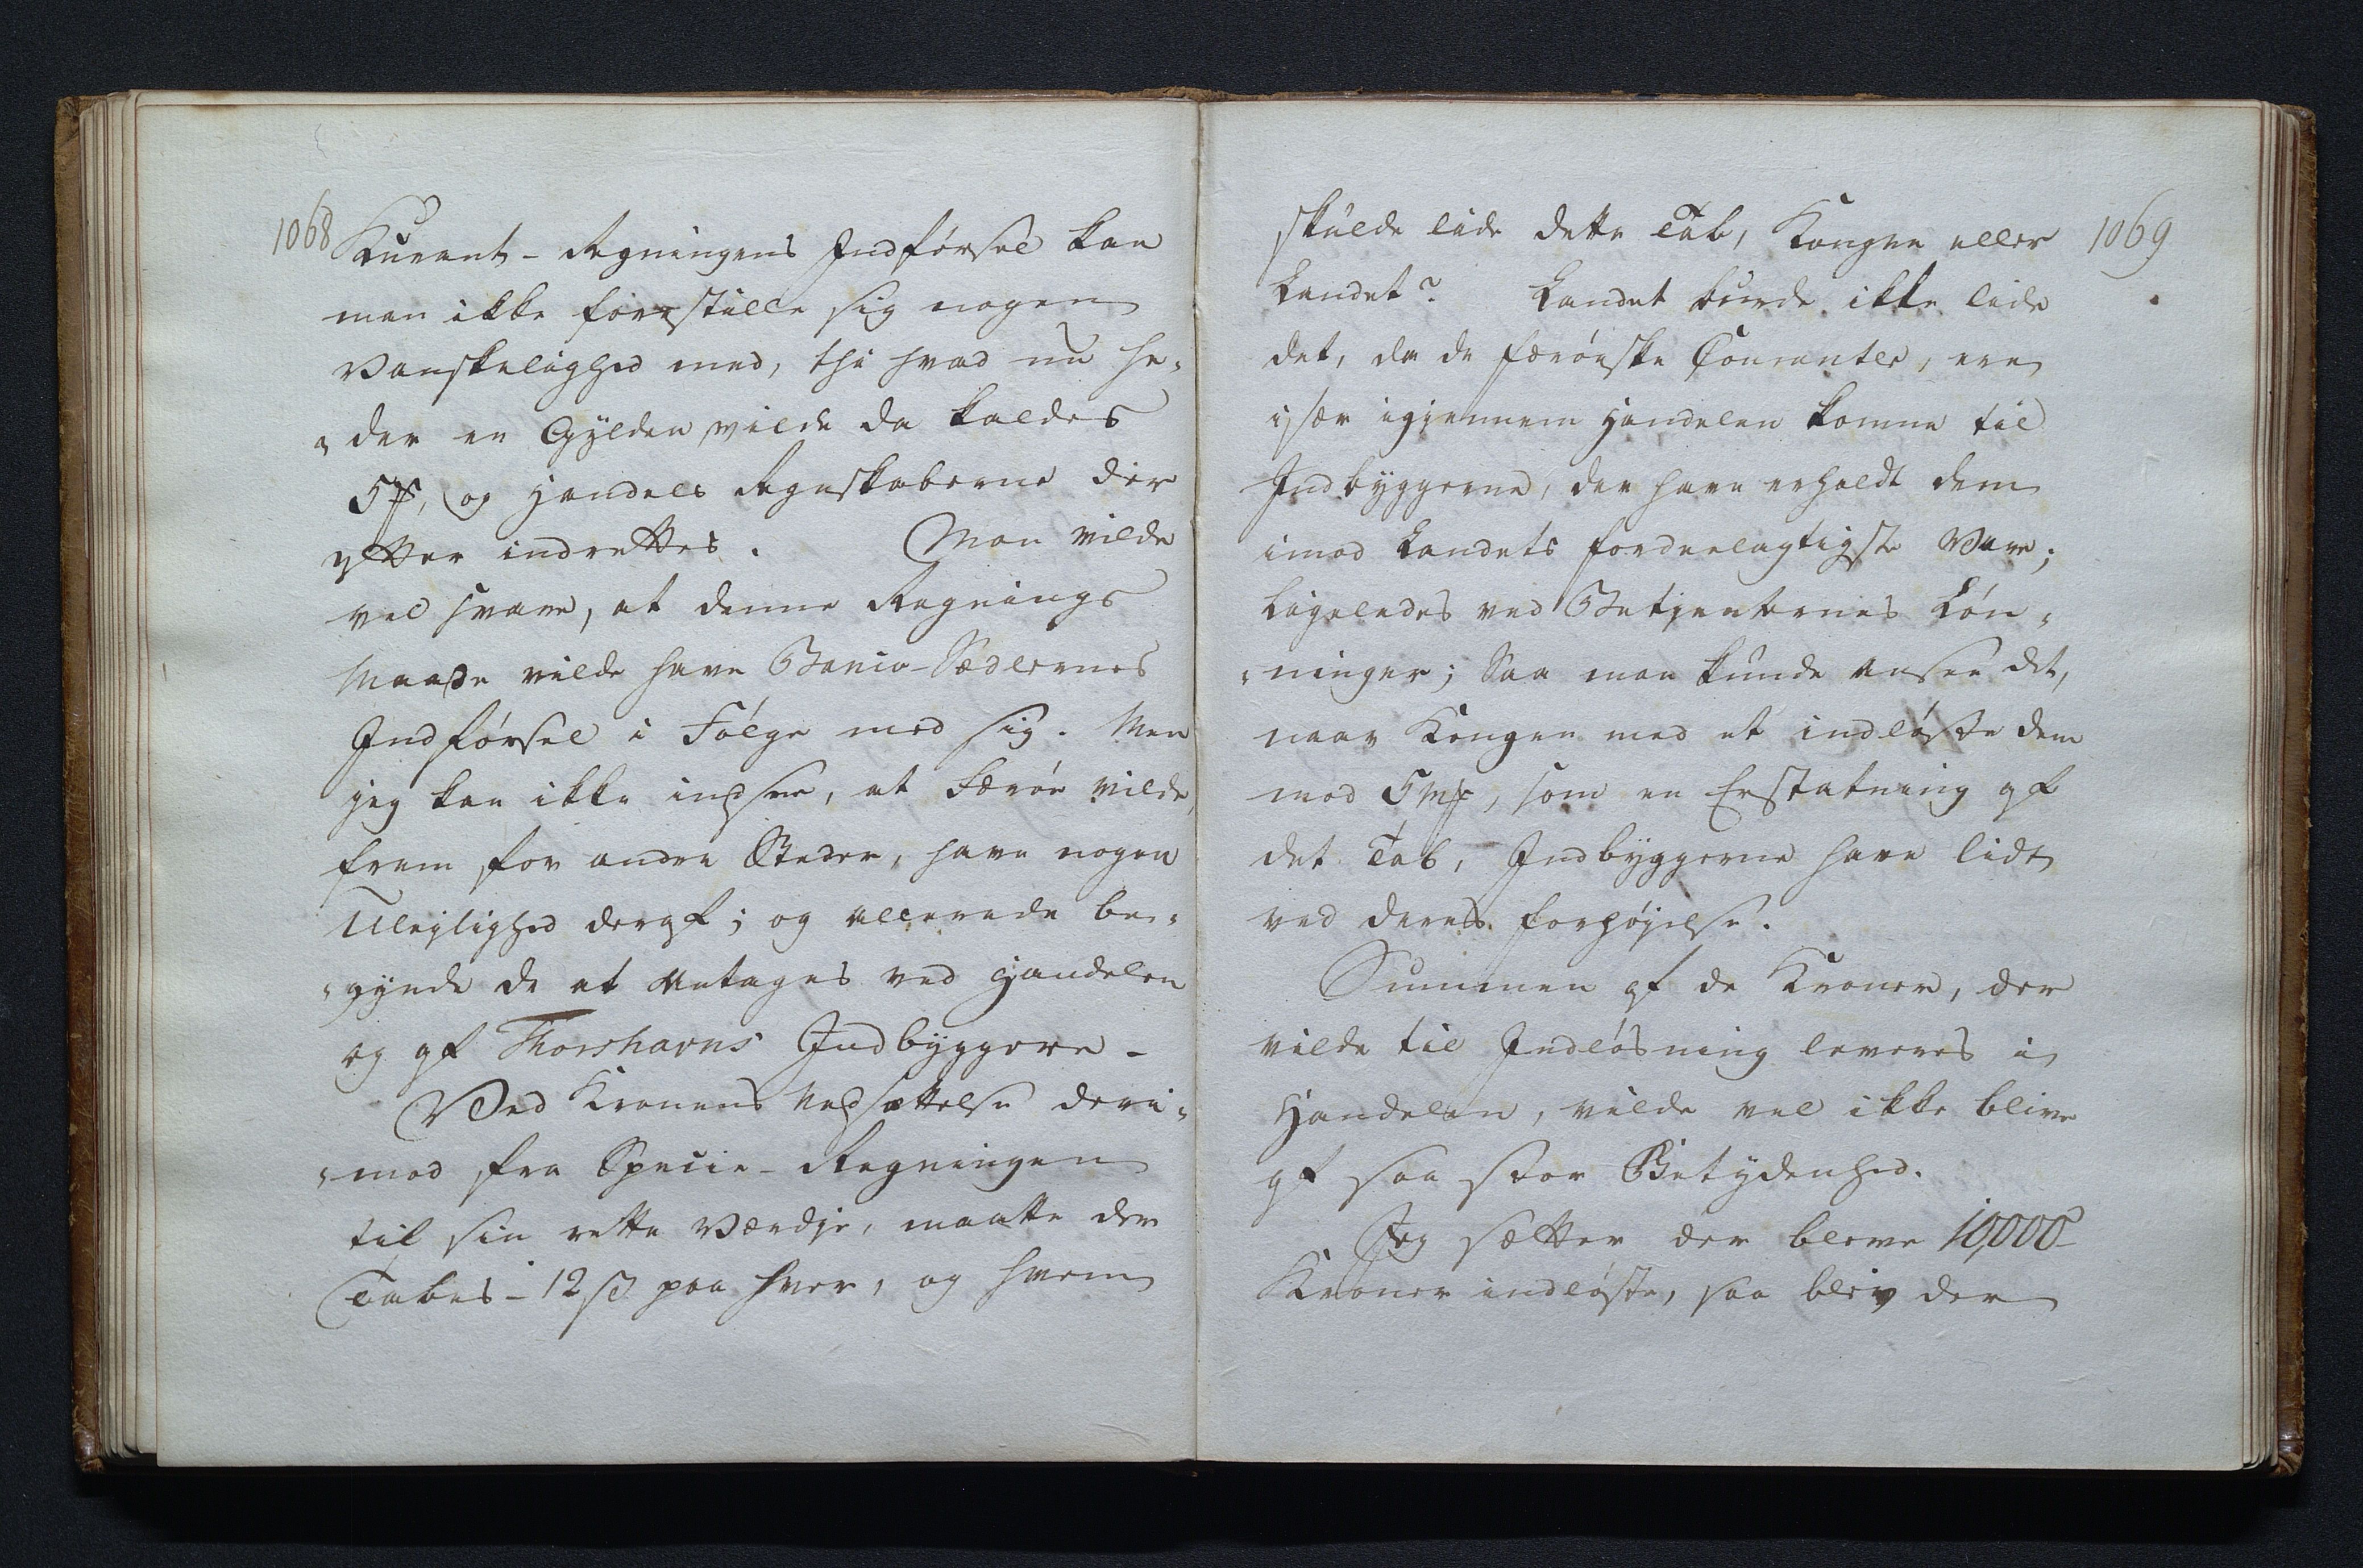 1068
Kurant-Regningens Indførsel kan
man ikke forestille sig nogen
Vanskelighed med, thi hvad nu he-
-der en Gylden, vilde da kaldes
5 ℳ, og Handels Regnskaberne der
efter indrettes. Man vilde
vel svare, at denne Regnings
Maade vilde have Banco-Sedlernes
Indførsel i Følge med sig. Men
jeg kan ikke indsee, at Færøe vilde,
frem for andre Steder, have nogen
Ulejlighed deraf; og allerede be-
-gynde de at Antages ved Handelen
og af Thorshavns Indbyggere -
Ved Kronens Nedsættelse deri-
-mod fra Specie-Regningen
til sin rette Værdje, maatte der
Tabes - 12 ß paa hver, og hvem
1069
skulde lide dette Tab, Kongen eller
Landet? Landet burde ikke lide
det, da de færøiske Couranter, ere
især igiennem Handelen komne til
Indbyggerne, der have erholdt dem
imod Landets fordeelagtigste Vare;
ligeledes ved Betjenternes Løn-
-ninger; Saa man kunde ansee det,
naar Kongen med at indløse dem
mod 5 Mȝ, som en Erstatning af
det Tab, Indbyggerne have lidt
ved deres forhøjelse.
Summen af de Kroner, der
vilde til Indløsning leveres i
Handelen, vilde vel ikke blive
af saa stor Betydenhed.
Jeg sætter der bleve 10,000
Kroner indløste, saa blev der